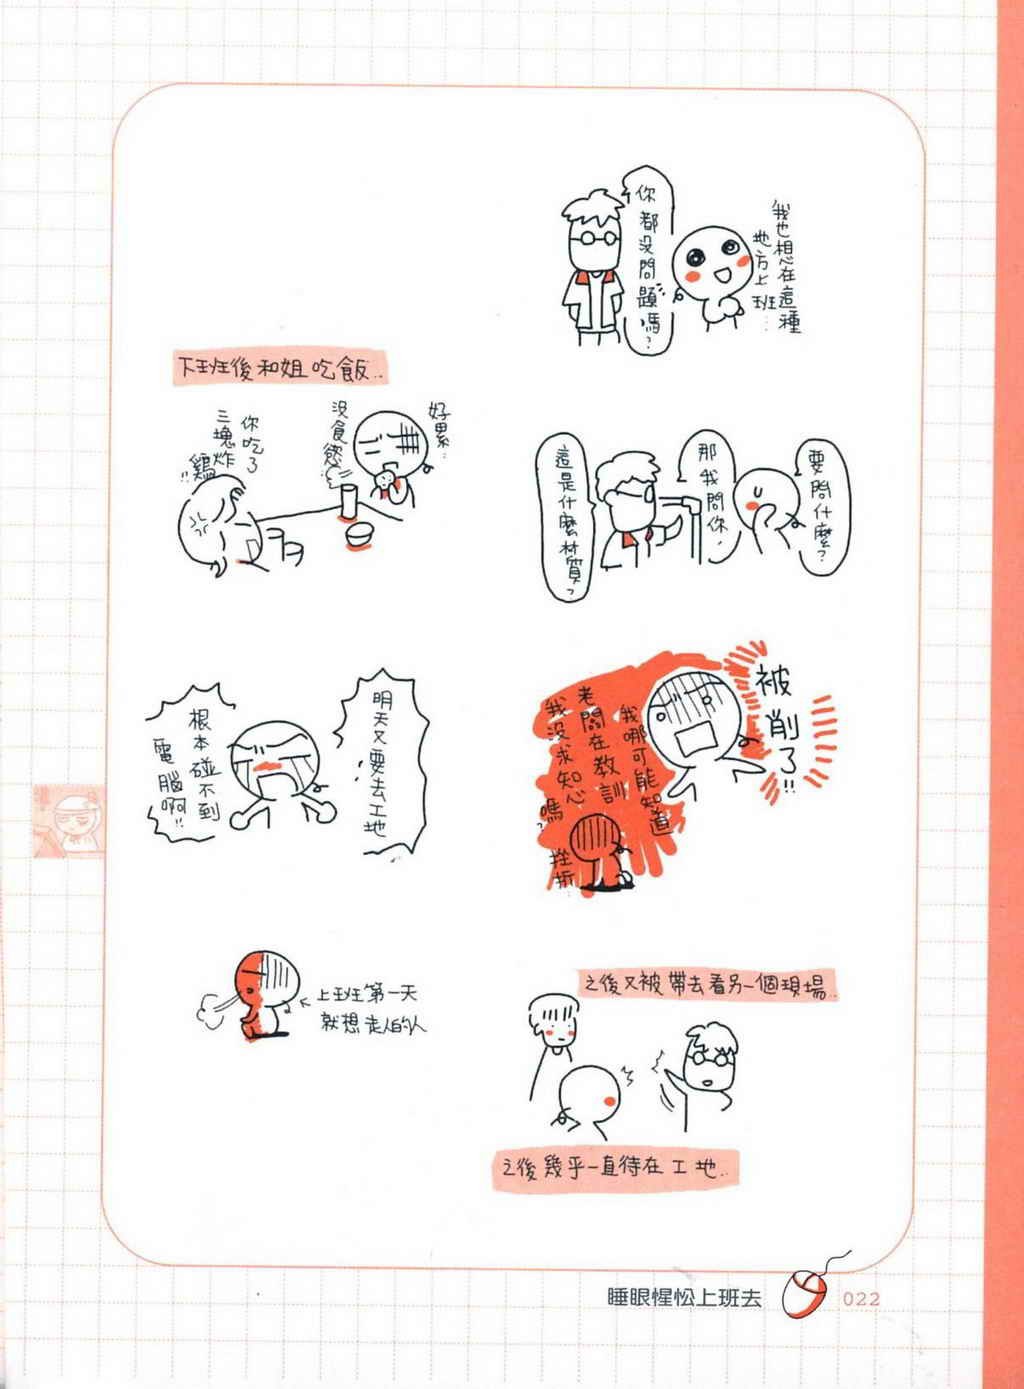 我也想在這種
地方上班…
你都沒問題嗎？
要問什麼？
那我問你，
這是什麼材質？
被削了!!
我哪可能知道
老闆在教訓
我沒求知心嗎？
挫折…
之後又被帶去看另一個現場…
之後幾乎一直待在工地…
下班後和姐吃飯…
好累…
沒食慾…
你吃了
三塊炸
雞!!
明天又要去工地
根本碰不到
電腦啊!!
上班第一天
就想走人的人
睡眼惺忪上班去
022